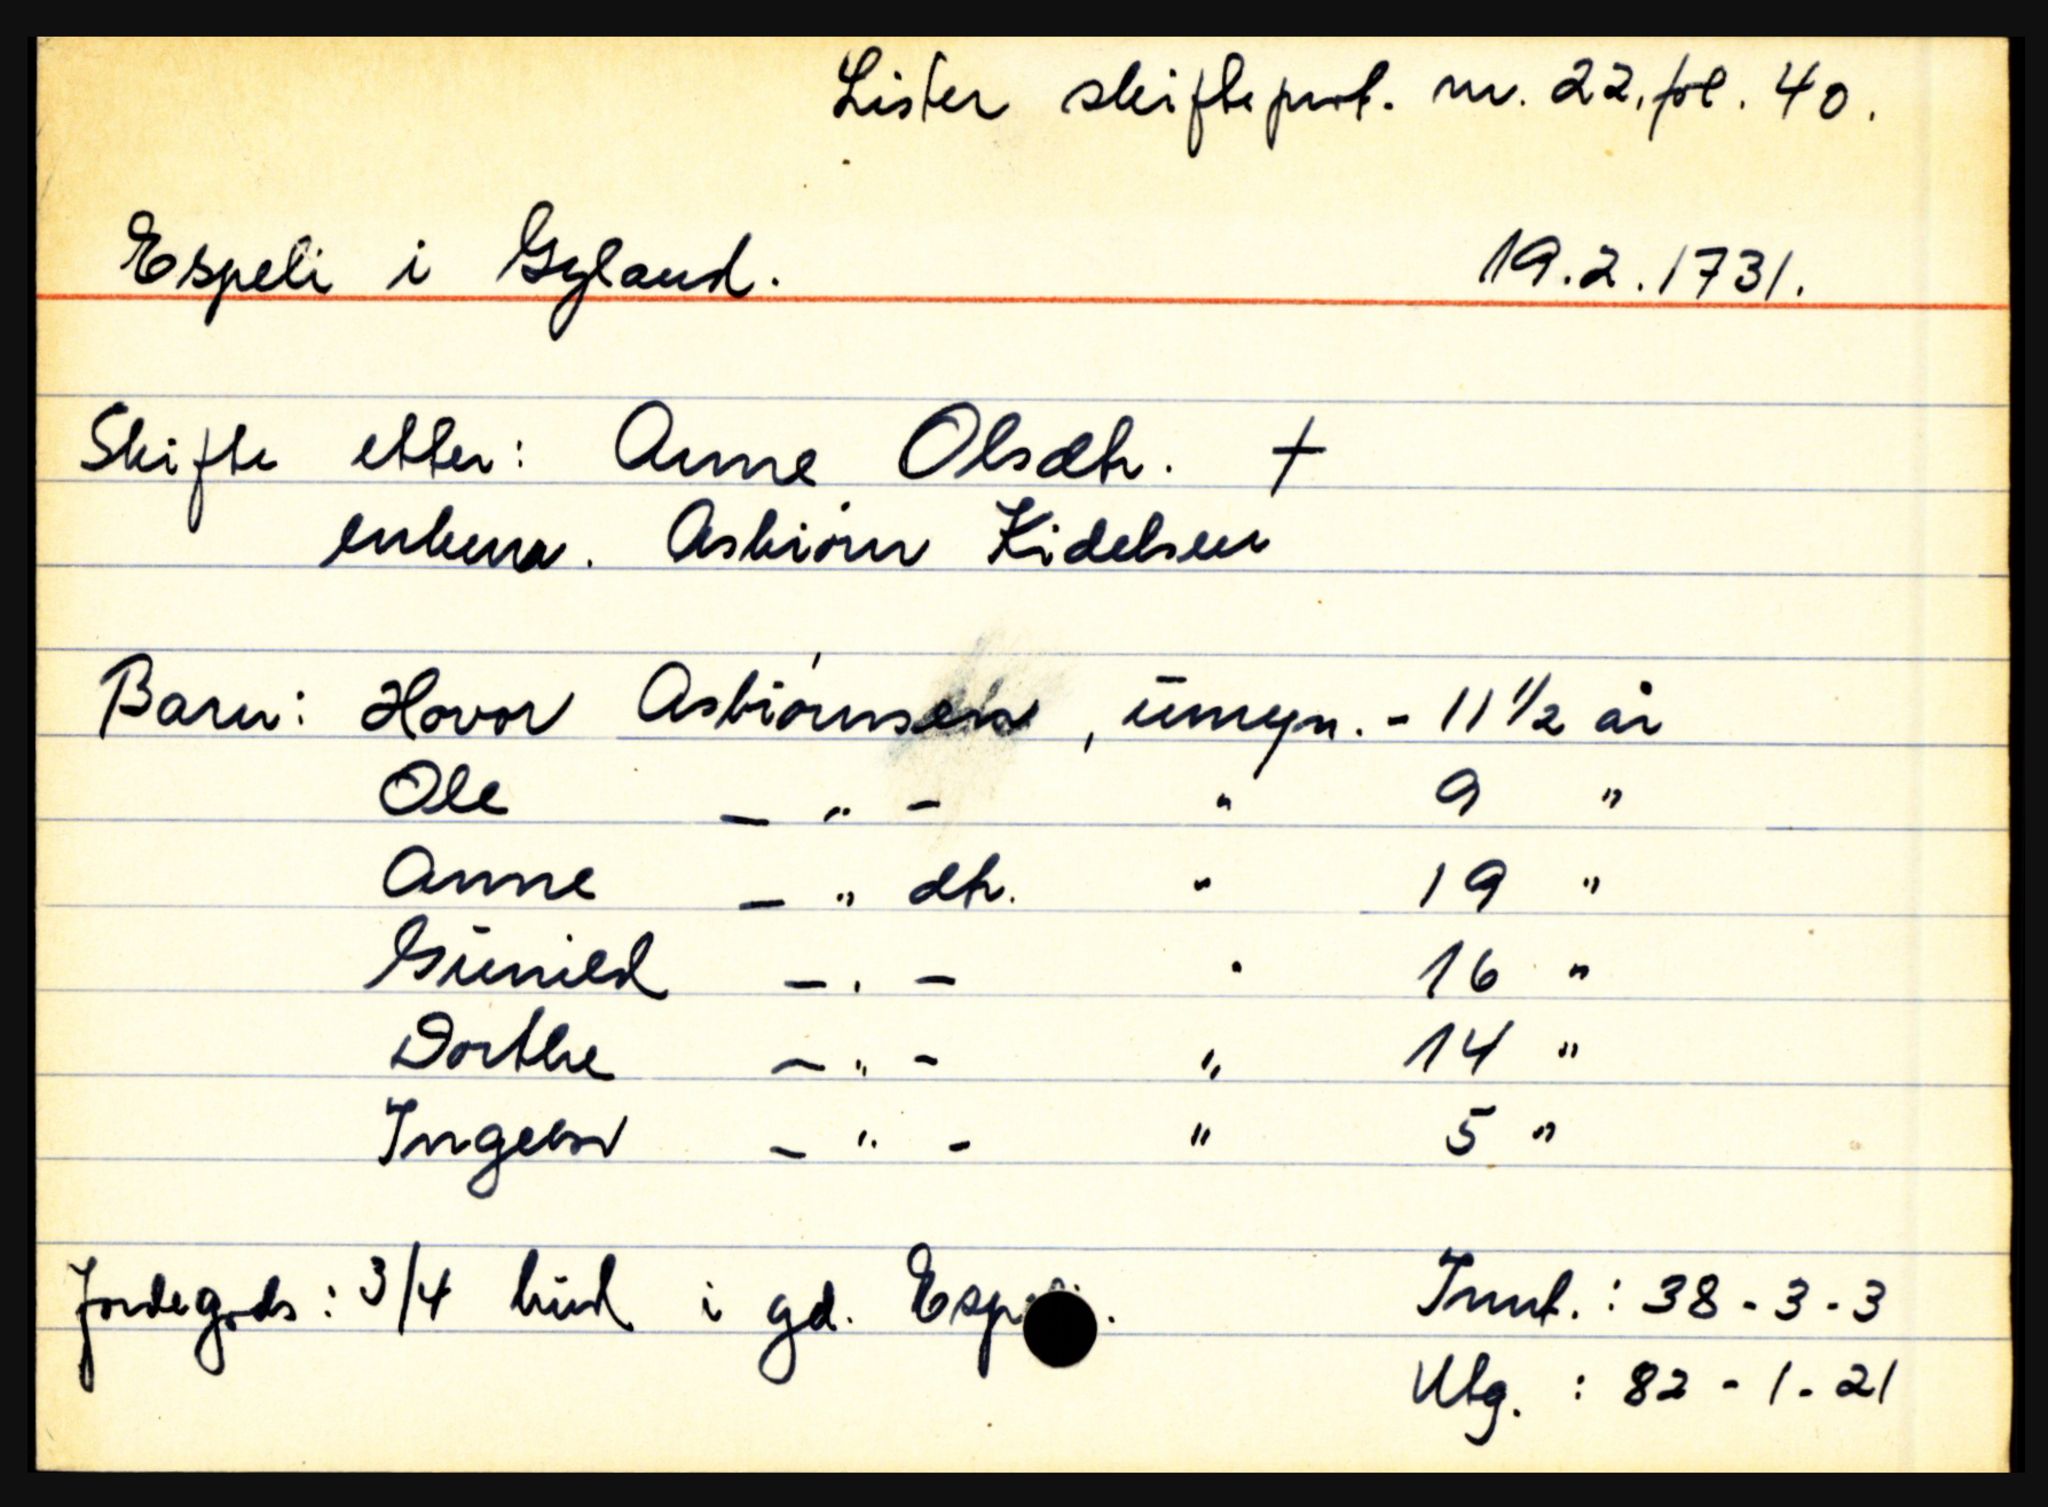 Lister skifteprot. nr. 22, fol. 40.
Espeli i Gyland. 19.2.1731.
Skifte etter: Anne Olsdtr. †
enkem. Asbiørn Kidelsen
Barn: Hovor Asbiørnsen, ūmyn. - 11 1/2 år
Ole — " — " 9 "
Anne — " dtr. " 19 "
Gūnild — " — " 16 "
Dorthe — " — " 14 "
Ingebor — " — " 5 "
Jordegods: 3/4 hūd i gd. Espeli. Innt.: 38 - 3 - 3
Utg. : 82 - 1 - 21